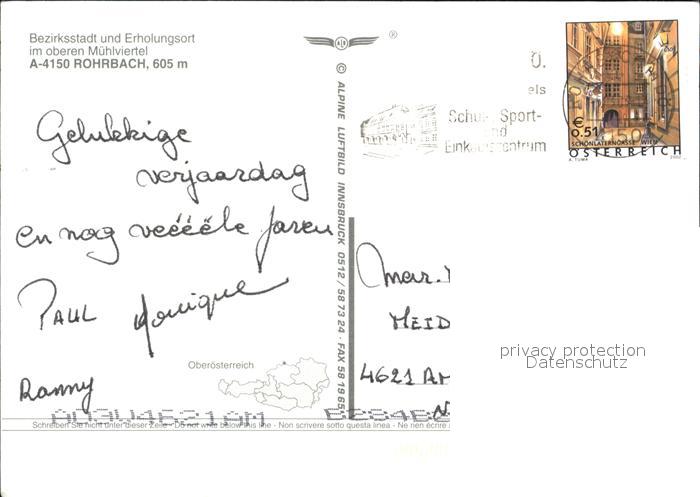 Bezirksstadt und Erholungsort
im oberen Mühlviertel
A-4150 ROHRBACH, 605 m
Gelukkige
verjaardag
en nog veéééle jaren
PAUL Monique
Ranny
Oberösterreich
Schreiben Sie nicht unter dieser Zeile - Do not write below this line - Non scrivere sotto questa linea - Ne rien écrire
® 
© ALPINE LUFTBILD INNSBRUCK 0512 / 58 73 24 · FAX 58 19 65
Ö.
els
Schul-, Sport-
und
Einkaufszentrum
€
0.51
SCHÖNLATERNGASSE · WIEN
ÖSTERREICH
A. TUMA 2002
Mar.
MEID
4621 AM
privacy protection
Datenschutz